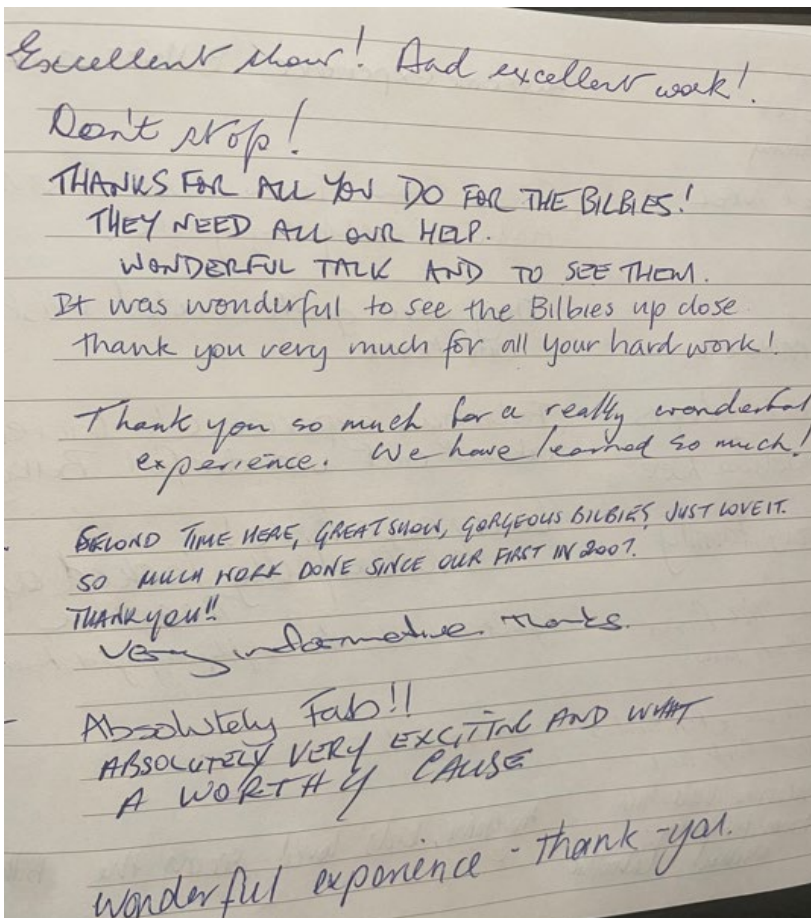 Excellent show! And excellent work!.
Don't stop!
THANKS FOR ALL YOU DO FOR THE BILBIES!
THEY NEED ALL OUR HELP.
WONDERFUL TALK AND TO SEE THEM.
It was wonderful to see the Bilbies up close
thank you very much for all your hard work!
Thank you so much for a really wonderful
experience. We have learned so much!
SECOND TIME HERE, GREAT SHOW, GORGEOUS BILBIES, JUST LOVE IT.
SO MUCH WORK DONE SINCE OUR FIRST IN 2007.
THANK YOU!!
Very informative. Thanks.
Absolutely Fab!!
ABSOLUTELY VERY EXCITING AND WHAT
A WORTHY CAUSE
Wonderful experience - thank-you.